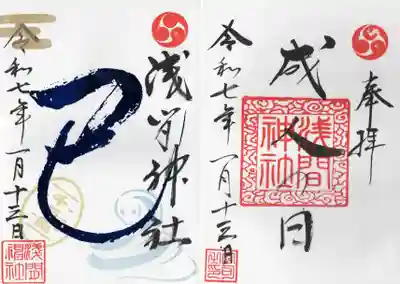 奉拝
成人の日
浅間神社
令和七年一月十三日
浅间神社
巳
令和七年一月十三日
浅間神社